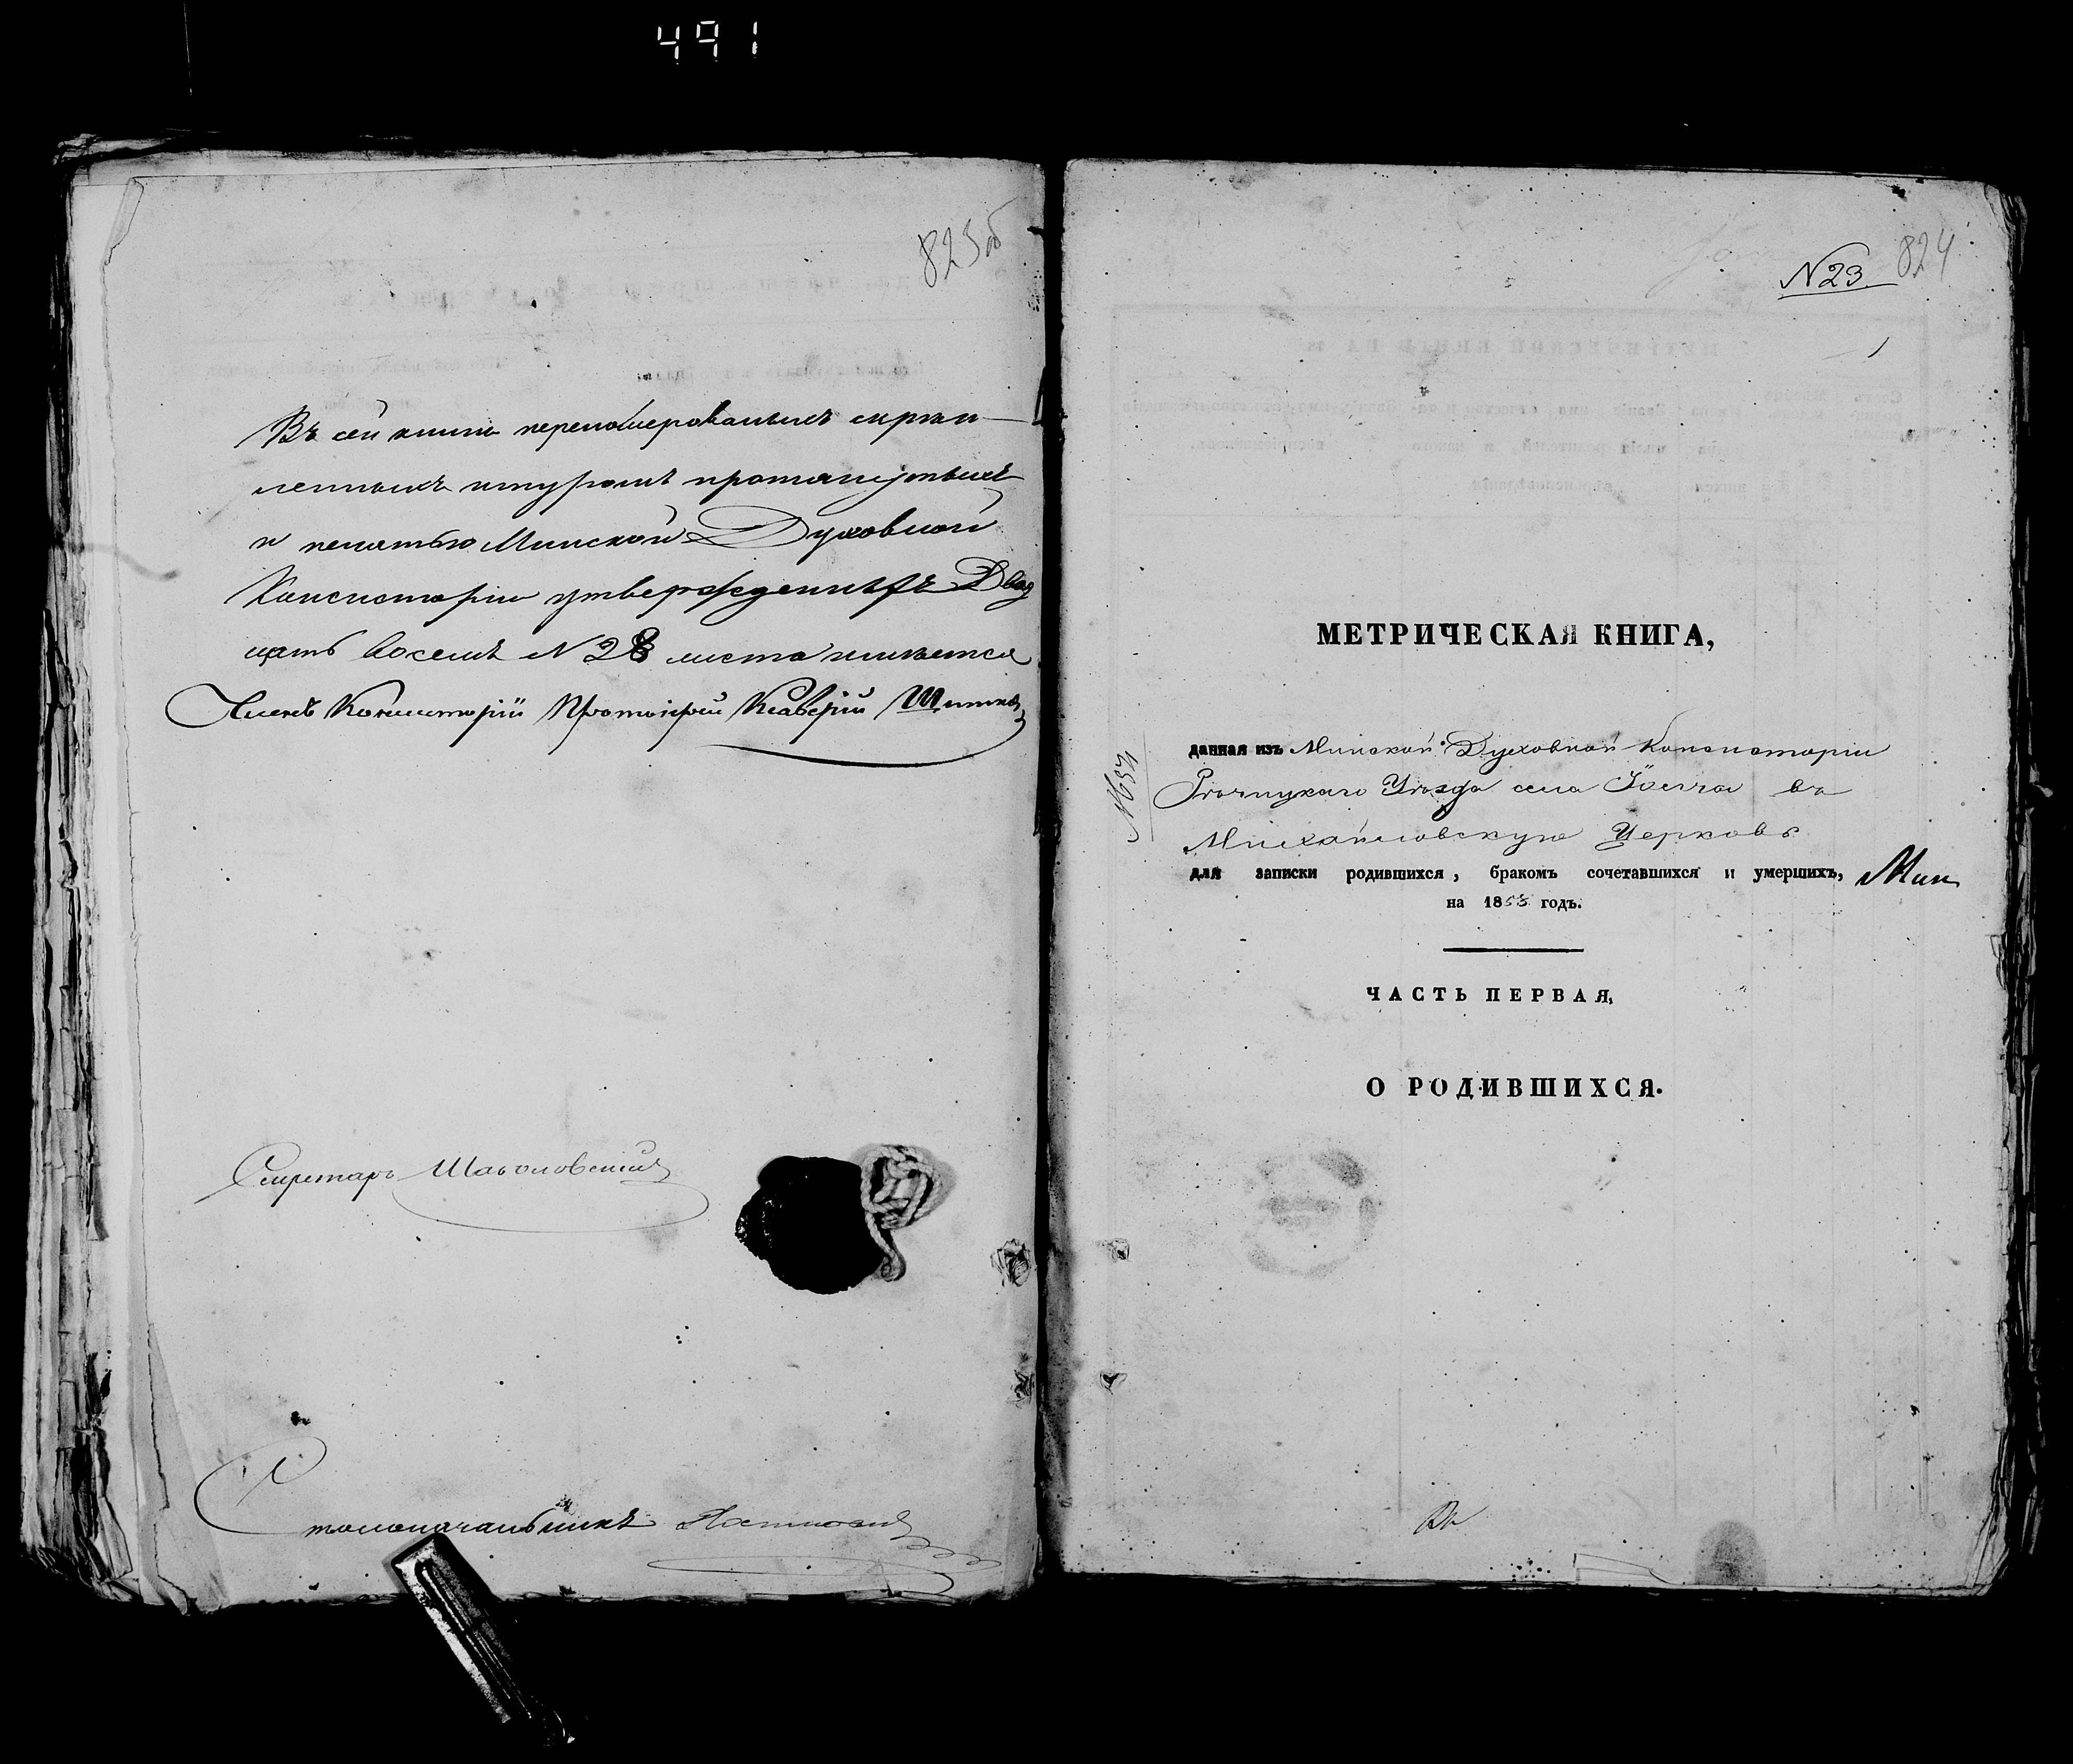 491
823об
Въ сей книгѣ перенумерованныхъ скрѣп-
ленныхъ шнуромъ протянутыхъ
и печатью Минской Духовной
Консисторіи утвержденныхъ Двад
цать восемь N 28 листа числится
Членъ Консисторіи Протоіерей Ксаверій
Секретарь
Столоначальникъ
824
N23.
1
МЕТРИЧЕСКАЯ КНИГА,
данная изъ Минской Духовной Консисторіи
Рѣчицкаго Уѣзда села въ
Михайловскую Церковь
для записки родившихся, бракомъ сочетавшихся и умершихъ, Мин
на 1858 годъ.
ЧАСТЬ ПЕРВАЯ,
О РОДИВШИХСЯ.